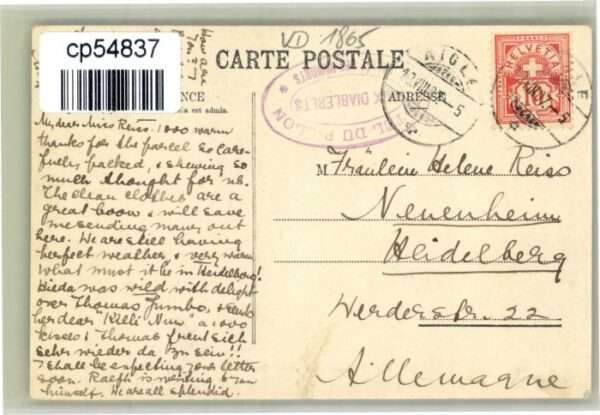 cp54837
How are
you?
VD 1865
CARTE POSTALE
ADRESSE
HELVETIA
AIGLE
5
HOTEL DU PILLON
DIABLERETS
My dear Miss Reiss. 1000 warm
thanks for the parcel so care-
fully packed, & shewing so
much thought for us.
The clean clothes are a
great boon & will save
me sending many out
here. We are still having
perfect weather, & very warm
What must it be in Heidelberg!
Hieda was wild with delight
over Thomas Jumbo, & sends
her dear "Killi Nur" a 1000
kisses! Thomas freut sich
sehr wieder da zu sein!!
I shall be expecting your letter
soon. Ralph is writing
himself. We are all splendid.
M Fräulein Helene Reiss
Neuenheim
Heidelberg
Werderstr. 22
Allemagne